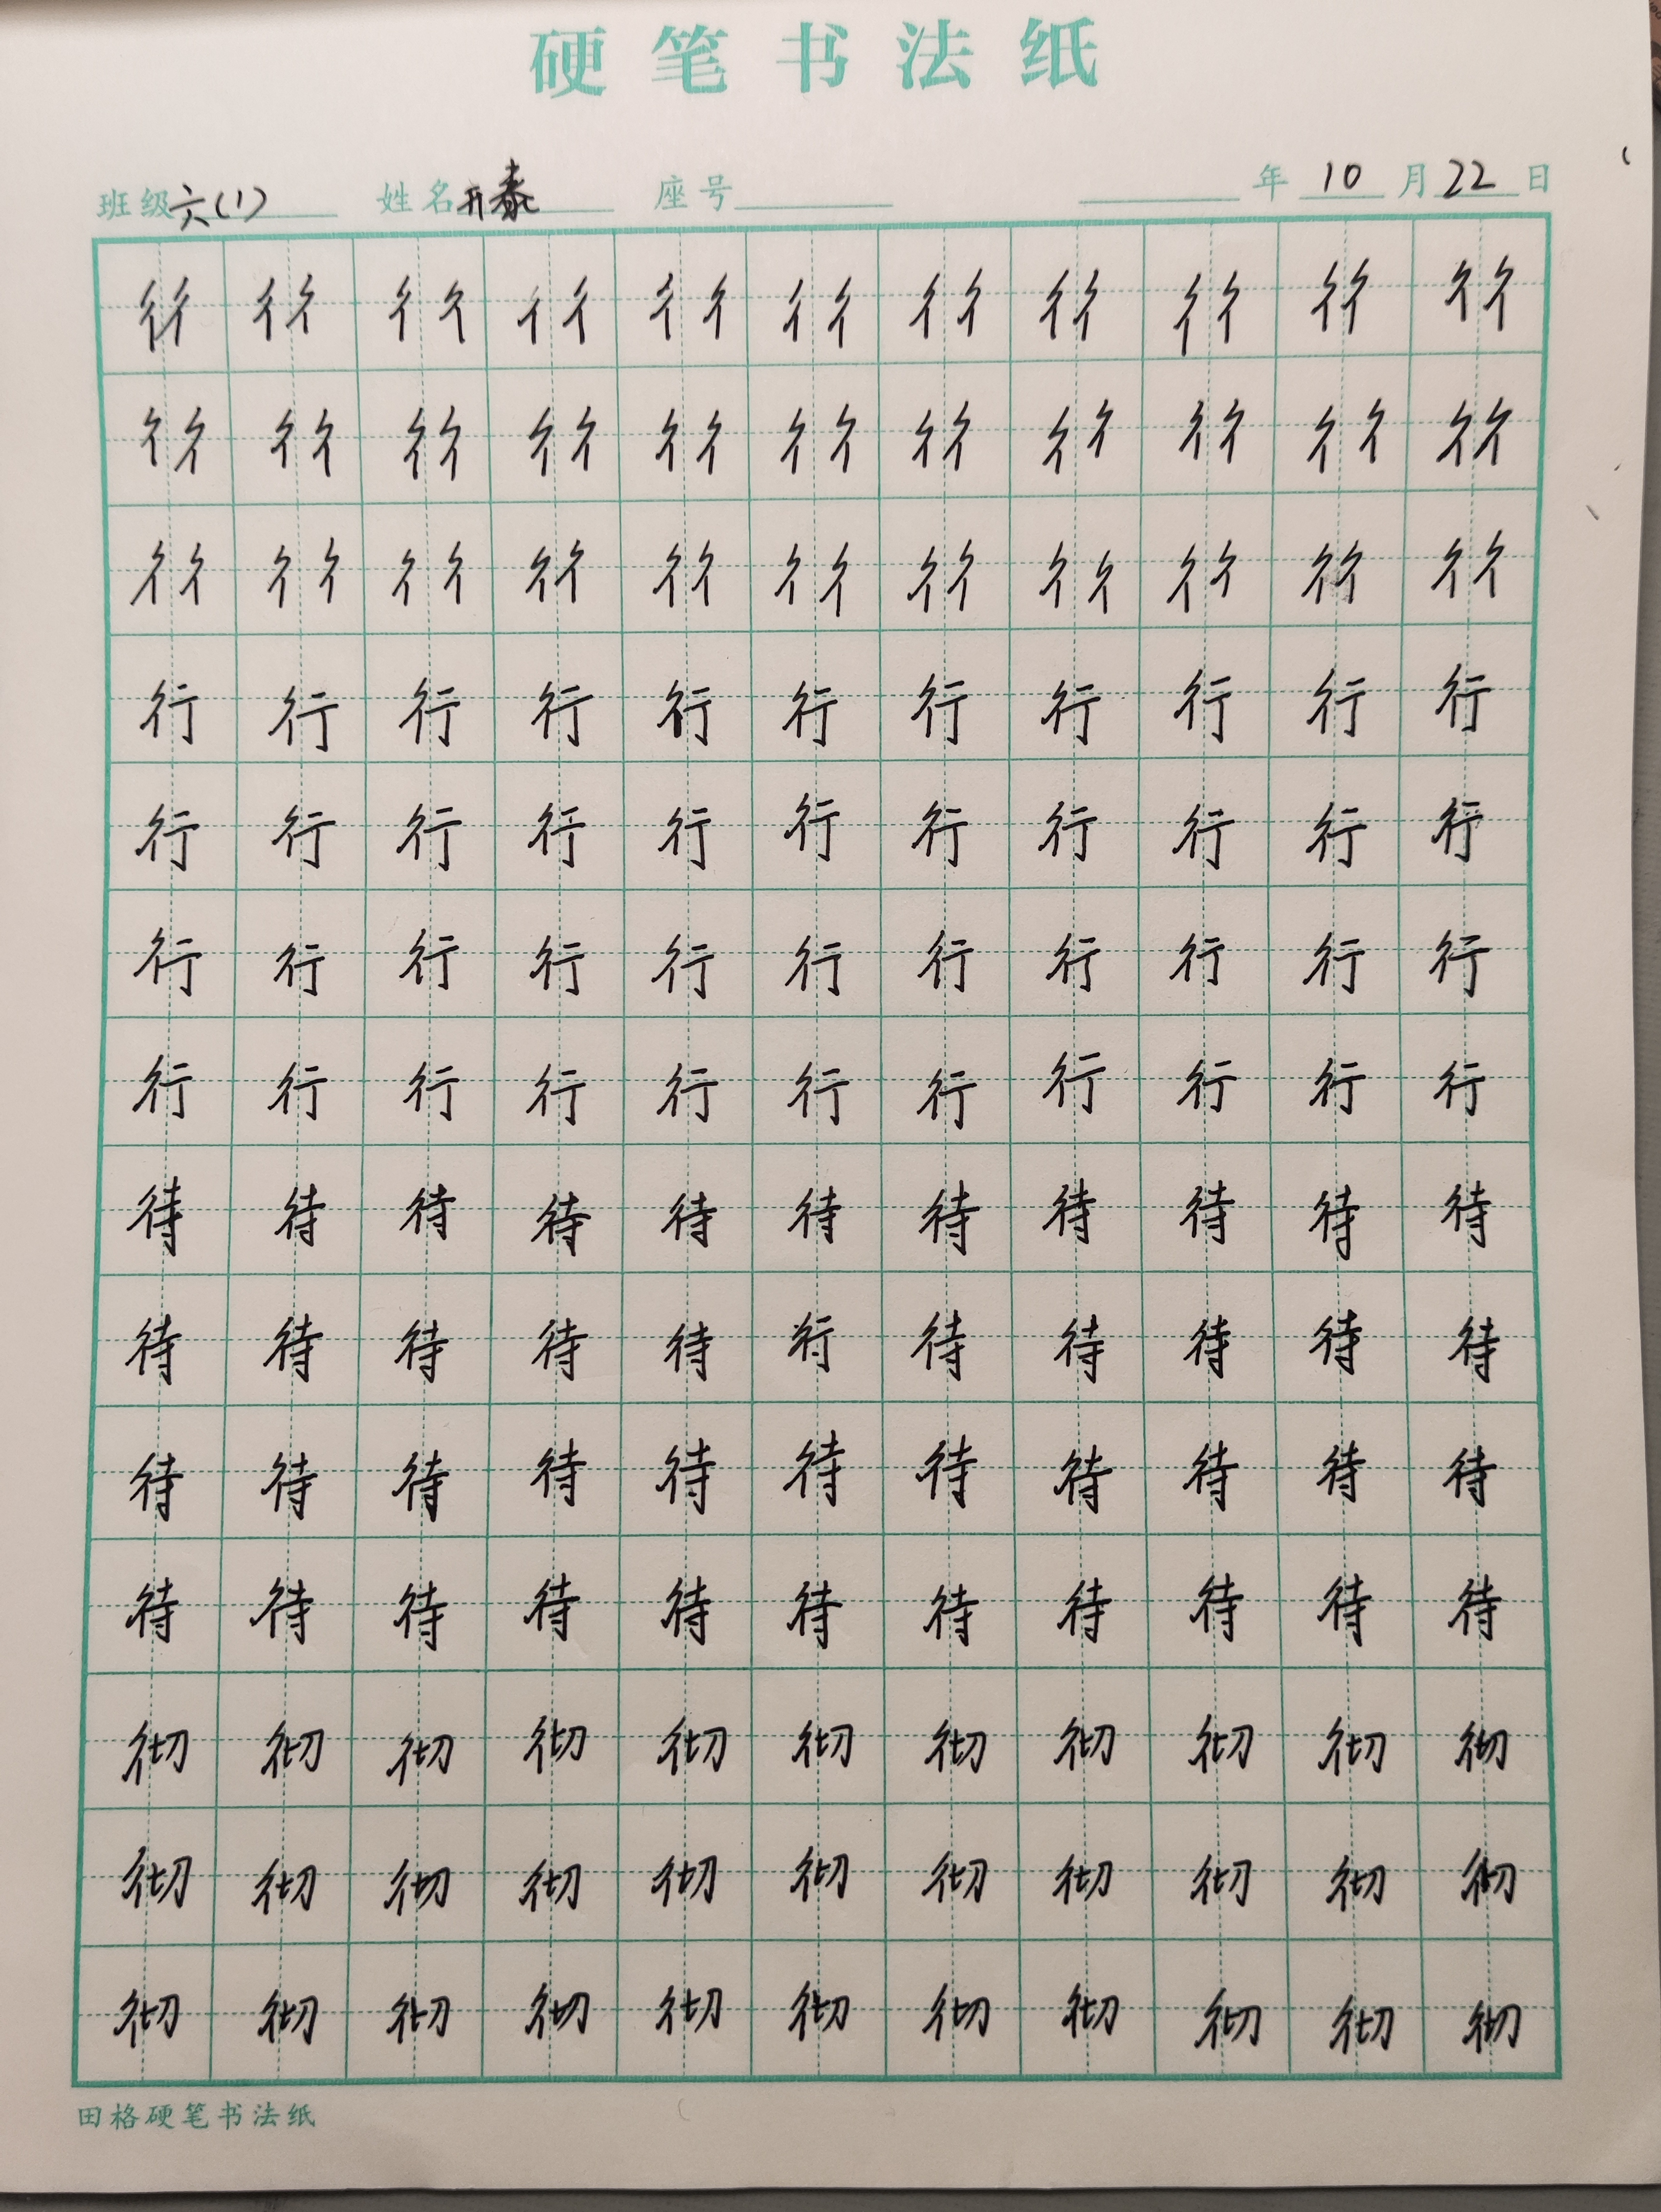 硬笔书法纸
班级六(1) 姓名开泰 座号 年10月22日
彳彳彳彳彳彳彳彳彳彳彳彳彳彳彳彳彳彳彳彳彳彳
彳彳彳彳彳彳彳彳彳彳彳彳彳彳彳彳彳彳彳彳彳彳
彳彳彳彳彳彳彳彳彳彳彳彳彳彳彳彳彳彳彳彳彳彳
行行行行行行行行行行行
行行行行行行行行行行行
行行行行行行行行行行行
行行行行行行行行行行行
待待待待待待待待待待待
待待待待待行待待待待待
待待待待待待待待待待待
待待待待待待待待待待待
彻彻彻彻彻彻彻彻彻彻彻
彻彻彻彻彻彻彻彻彻彻彻
彻彻彻彻彻彻彻彻彻彻彻
田格硬笔书法纸